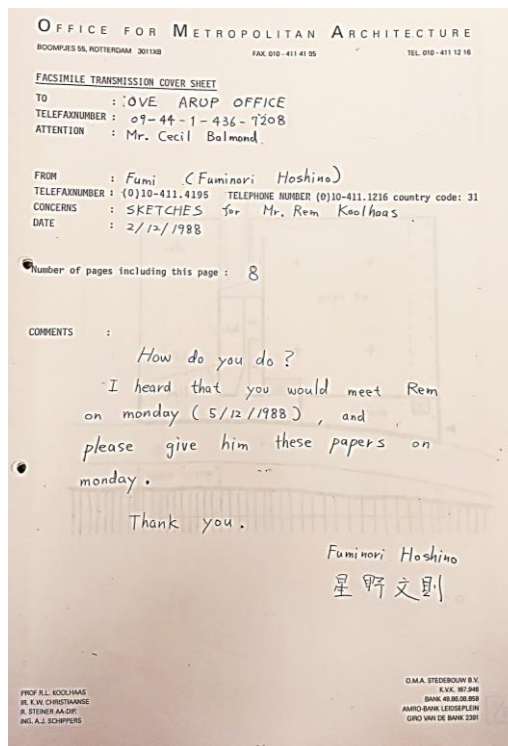 OFFICE FOR METROPOLITAN ARCHITECTURE
BOOMPJES 55, ROTTERDAM 3011XB FAX. 010 - 411 41 95 TEL. 010 - 411 12 16
FACSIMILE TRANSMISSION COVER SHEET
TO : OVE ARUP OFFICE
TELEFAXNUMBER : 09-44-1-436-7208
ATTENTION : Mr. Cecil Balmond
FROM : Fumi (Fuminori Hoshino)
TELEFAXNUMBER : (0)10-411.4195 TELEPHONE NUMBER (0)10-411.1216 country code: 31
CONCERNS : SKETCHES for Mr. Rem Koolhaas
DATE : 2/12/1988
Number of pages including this page : 8
COMMENTS :
How do you do ?
I heard that you would meet Rem
on monday ( 5/12/1988 ) , and
please give him these papers on
monday .
Thank you .
Fuminori Hoshino
星野文則
PROF R.L. KOOLHAAS
IR. K.W. CHRISTIAANSE
R. STEINER AA-DIP.
ING. A.J. SCHIPPERS
O.M.A. STEDEBOUW B.V.
K.V.K. 167.946
BANK 49.86.08.859
AMRO-BANK LEIDSEPLEIN
GIRO VAN DE BANK 2391